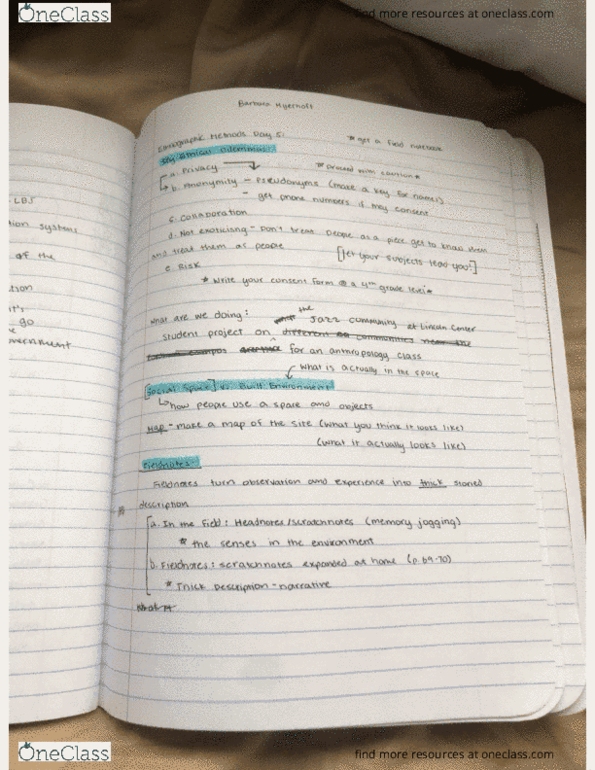 OneClass
find more resources at oneclass.com
Barbara Myerhoff
Ethnographic Methods Day 5:
* get a field notebook
Key Ethical Dilemmas:
* proceed with caution *
a. Privacy
b. Anonymity - Pseudonyms (make a key for names)
- get phone numbers if they consent
c. Collaboration
d. Not exoticising - Don't treat people as a piece get to know them
and treat them as people
[let your subjects lead you!]
e. Risk
* Write your consent form @ a 4th grade level *
What are we doing: the Jazz community at Lincoln Center
student project on different communities near the
for an anthropology class
What is actually in the space
[Social Space] vs. Built Environment
how people use a space and objects
Map - make a map of the site (what you think it looks like)
(what it actually looks like)
Fieldnotes:
Fieldnotes turn observation and experience into thick storied
description
a. In the field: Headnotes/scratchnotes (memory jogging)
* the senses in the environment
b. Fieldnotes: scratchnotes expanded at home (p. 69-70)
* Thick Description - narrative
What
- LBJ
tion systems
of the
ition
it's
go
OneClass
find more resources at oneclass.com